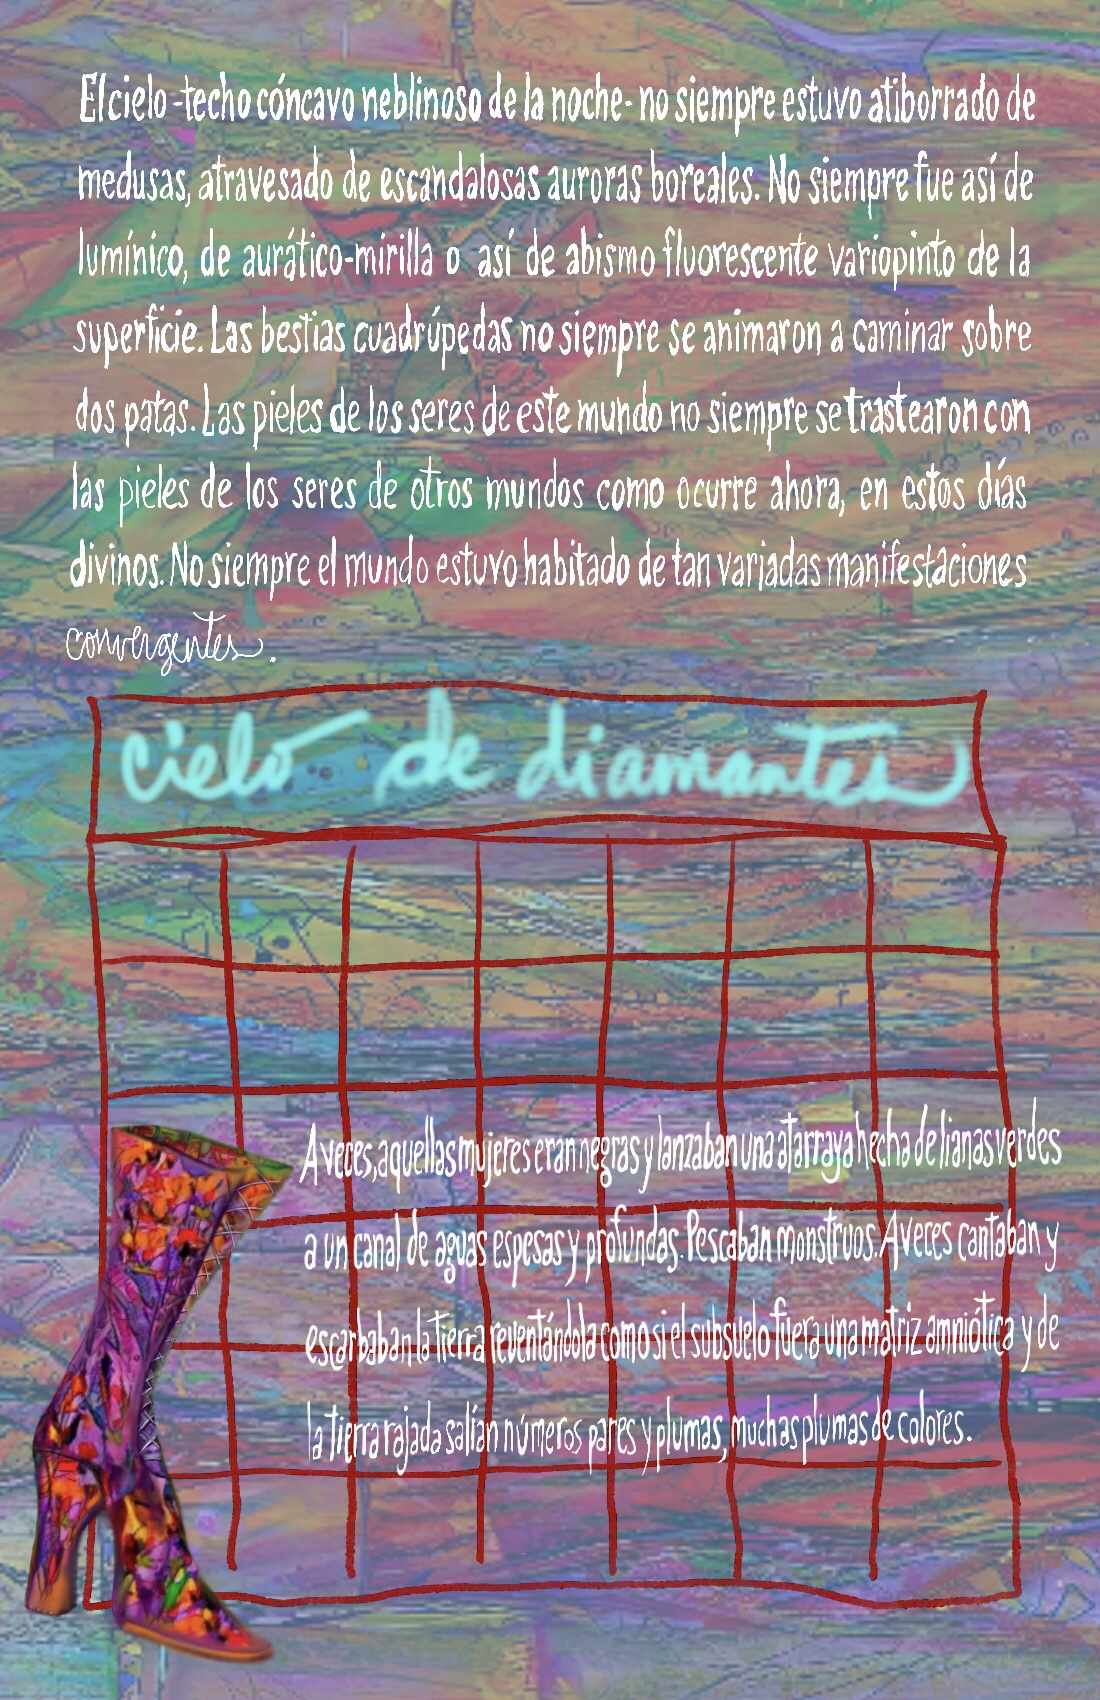 El cielo -techo cóncavo neblinoso de la noche- no siempre estuvo atiborrado de
medusas, atravesado de escandalosas auroras boreales. No siempre fue así de
lumínico, de aurático-mirilla o así de abismo fluorescente variopinto de la
superficie. Las bestias cuadrúpedas no siempre se animaron a caminar sobre
dos patas. Las pieles de los seres de este mundo no siempre se trastearon con
las pieles de los seres de otros mundos como ocurre ahora, en estos días
divinos. No siempre el mundo estuvo habitado de tan variadas manifestaciones
convergentes.
cielo de diamantes
A veces, aquellas mujeres eran negras y lanzaban una atarraya hecha de lianas verdes
a un canal de aguas espesas y profundas. Pescaban monstruos. A veces cantaban y
escarbaban la tierra reventándola como si el subsuelo fuera una matriz amniótica y de
la tierra rajada salían números pares y plumas, muchas plumas de colores.